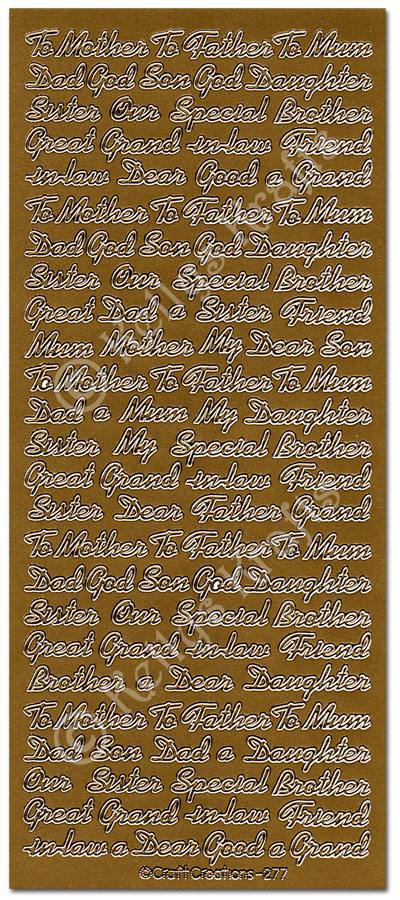 To Mother To Father To Mum
Dad God Son God Daughter
Sister Our Special Brother
Great Grand -in-law Friend
-in-law Dear Good a Grand
To Mother To Father To Mum
Dad God Son God Daughter
Sister Our Special Brother
Great Dad a Sister Friend
Mum Mother My Dear Son
To Mother To Father To Mum
Dad a Mum My Daughter
Sister My Special Brother
Great Grand -in-law Friend
Sister Dear Father Grand
To Mother To Father To Mum
Dad God Son God Daughter
Sister Our Special Brother
Great Grand -in-law Friend
Brother a Dear Daughter
To Mother To Father To Mum
Dad Son Dad a Daughter
Our Sister Special Brother
Great Grand -in-law Friend
-in-law a Dear Good a Grand
©CraftCreations-277
© Kellys Krafts
© Kellys Krafts